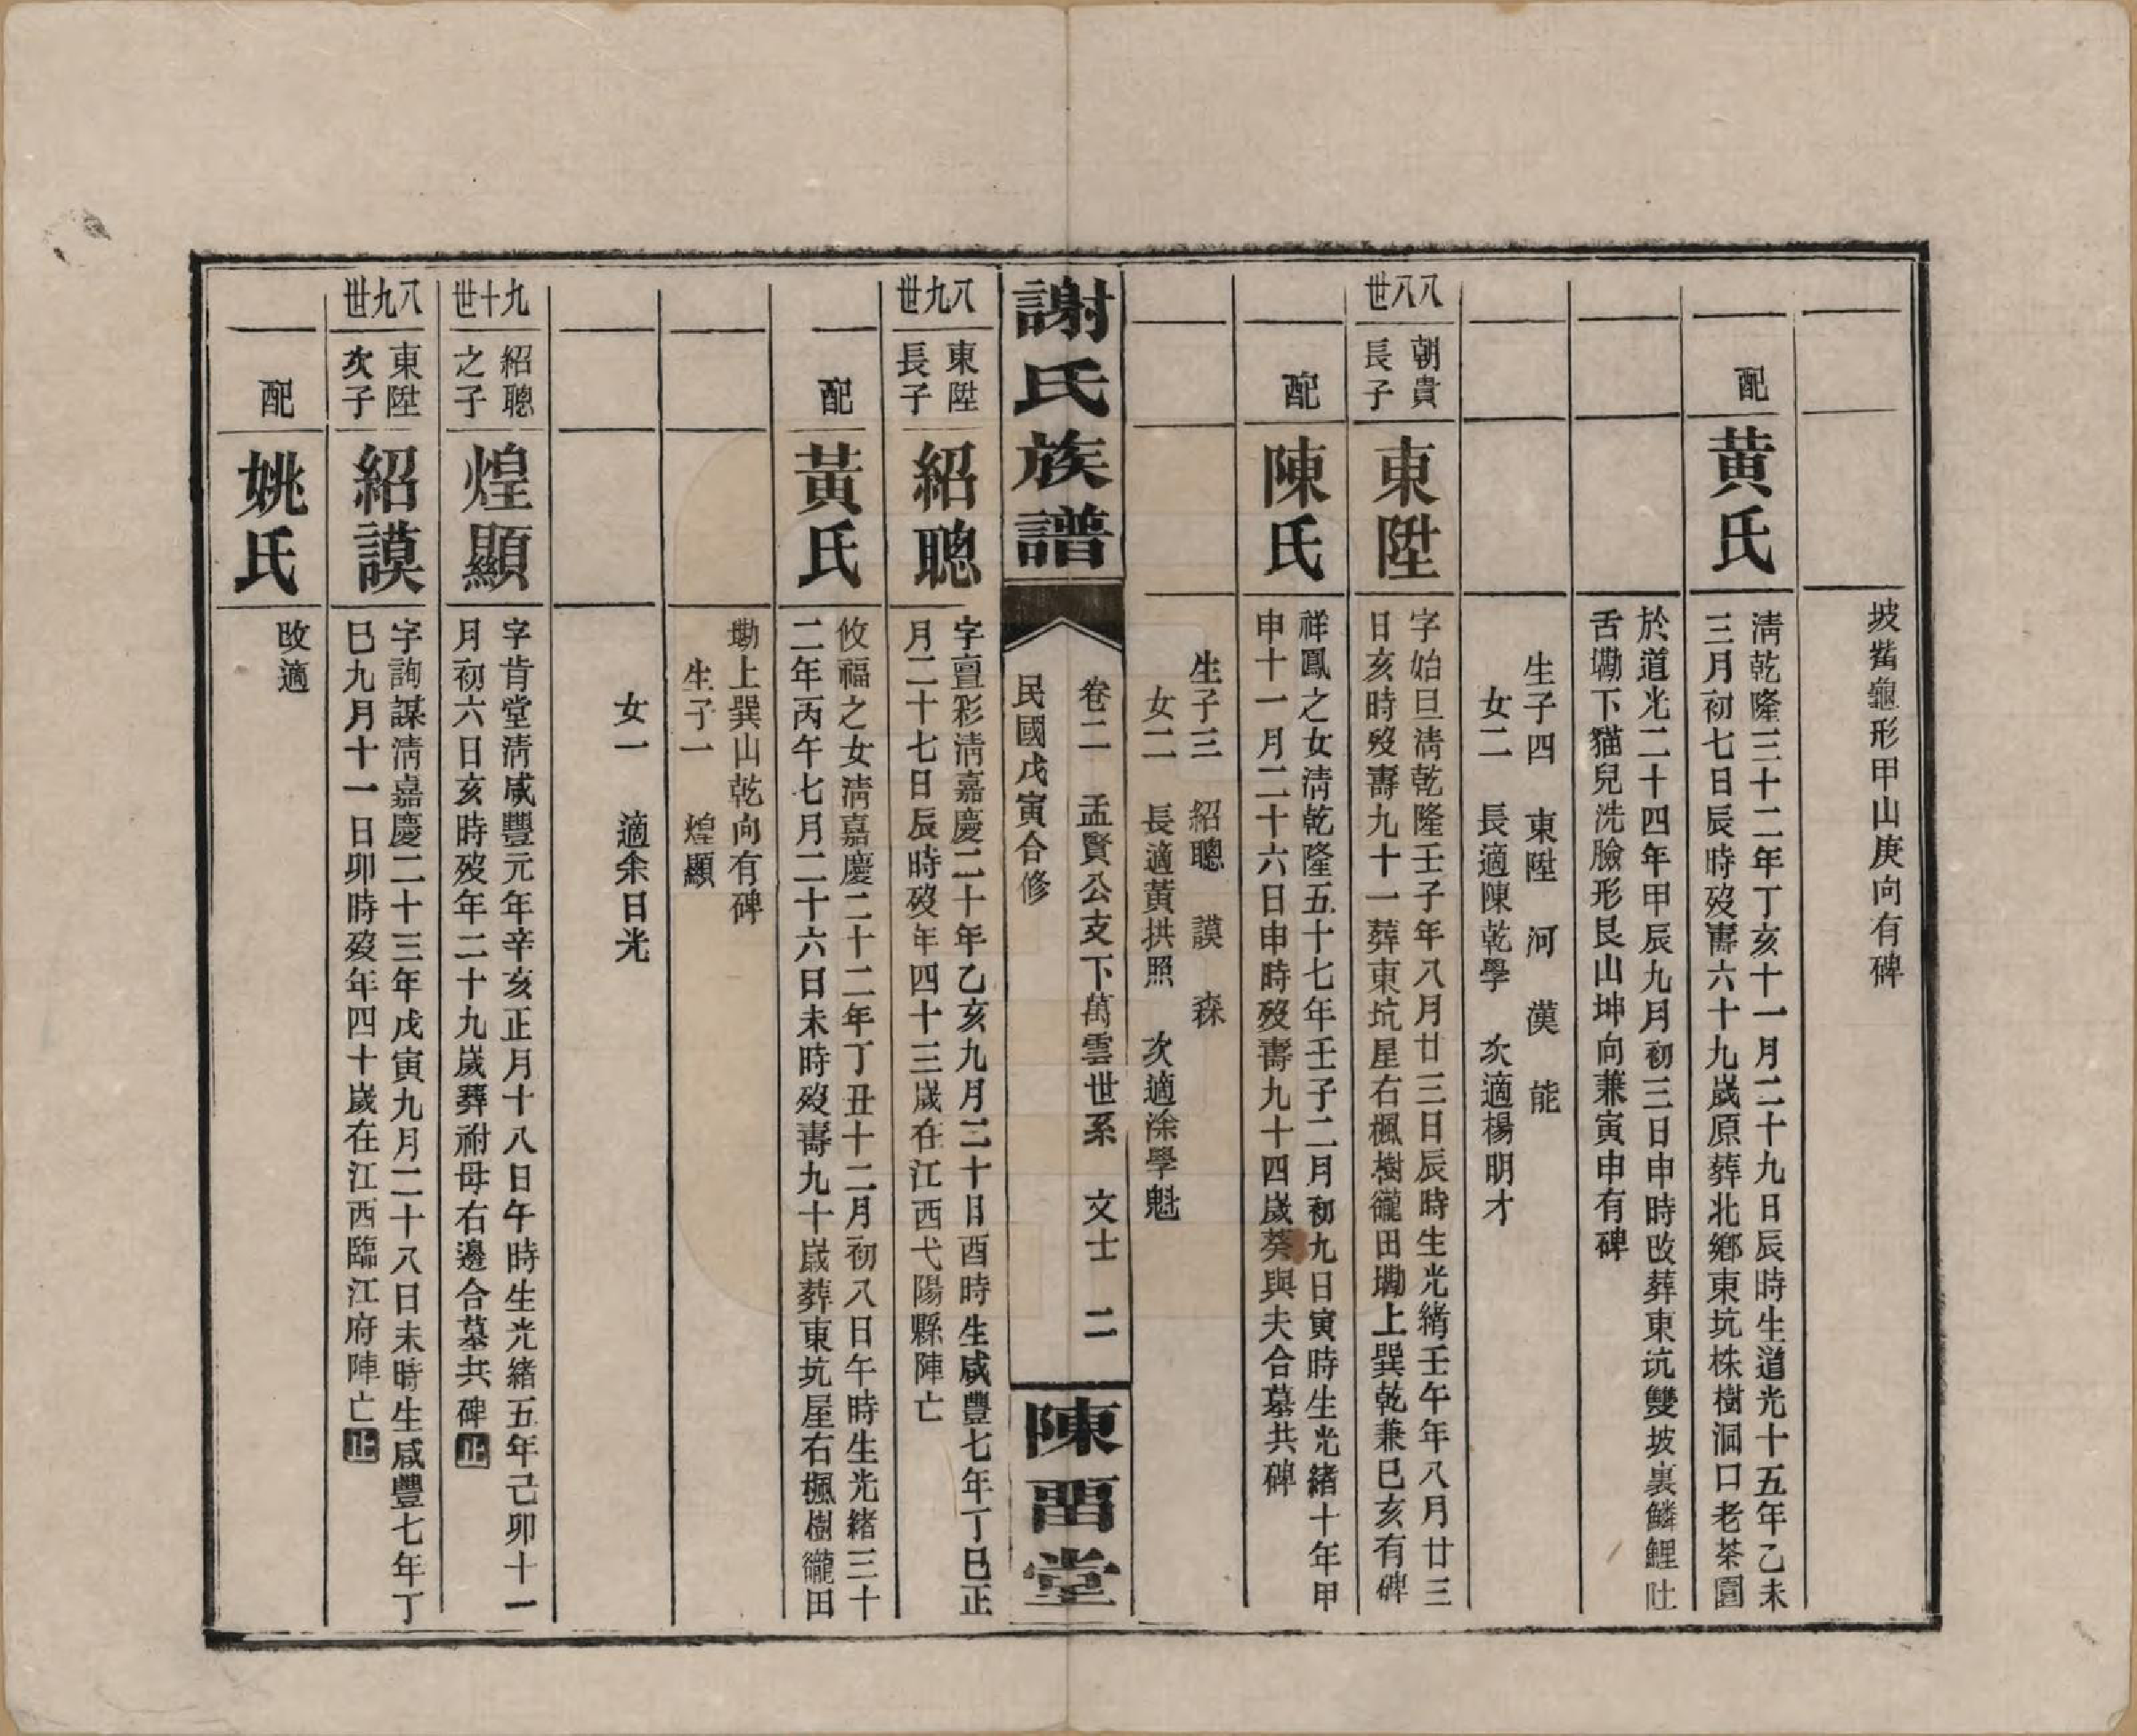 坡觜龜形甲山庚向有碑
配
黄氏
淸乾隆三十二年丁亥十一月二十九日辰時生道光十五年乙未
三月初七日辰時歿壽六十九歲原葬北鄉東坑株樹洞口老茶園
於道光二十四年甲辰九月初三日申時改葬東坑雙坡裏鱗鯉吐
舌墈下貓兒洗臉形艮山坤向兼寅申有碑
生子四 東陞 河 漢 能
女二 長適陳乾學 次適楊明才
八八世
朝貴
長子
東陞
字始旦淸乾隆壬子年八月廿三日辰時生光緒壬午年八月廿三
日亥時歿壽九十一葬東坑星右楓樹㠣田墈上巽乾兼巳亥有碑
配
陳氏
祥鳳之女淸乾隆五十七年壬子二月初九日寅時生光緒十年甲
申十一月二十六日申時歿壽九十四歲葵與夫合墓共碑
生子三 紹聰 謨 森
女二 長適黄拱照 次適涂學魁
謝氏族譜
卷二 孟賢公支下萬雲世系 文士 二
民國戊寅合修
陳畱堂
八九世
東陞
長子
紹聰
字亶彩淸嘉慶二十年乙亥九月二十日酉時生咸豐七年丁巳正
月二十七日辰時歿年四十三歲在江西弋陽縣陣亡
配
黃氏
攸福之女淸嘉慶二十二年丁丑十二月初八日午時生光緒三十
二年丙午七月二十六日未時歿壽九十歲葬東坑屋右楓樹㠣田
墈上巽山乾向有碑
生子一 煌顯
女一 適余日光
九十世
紹聰
之子
煌顯
字肯堂淸咸豐元年辛亥正月十八日午時生光緒五年己卯十一
月初六日亥時歿年二十九歲葬祔母右邊合墓共碑止
八九世
東陞
次子
紹謨
字詢謀淸嘉慶二十三年戊寅九月二十八日未時生咸豐七年丁
巳九月十一日卯時歿年四十歲在江西臨江府陣亡止
配
姚氏
改適